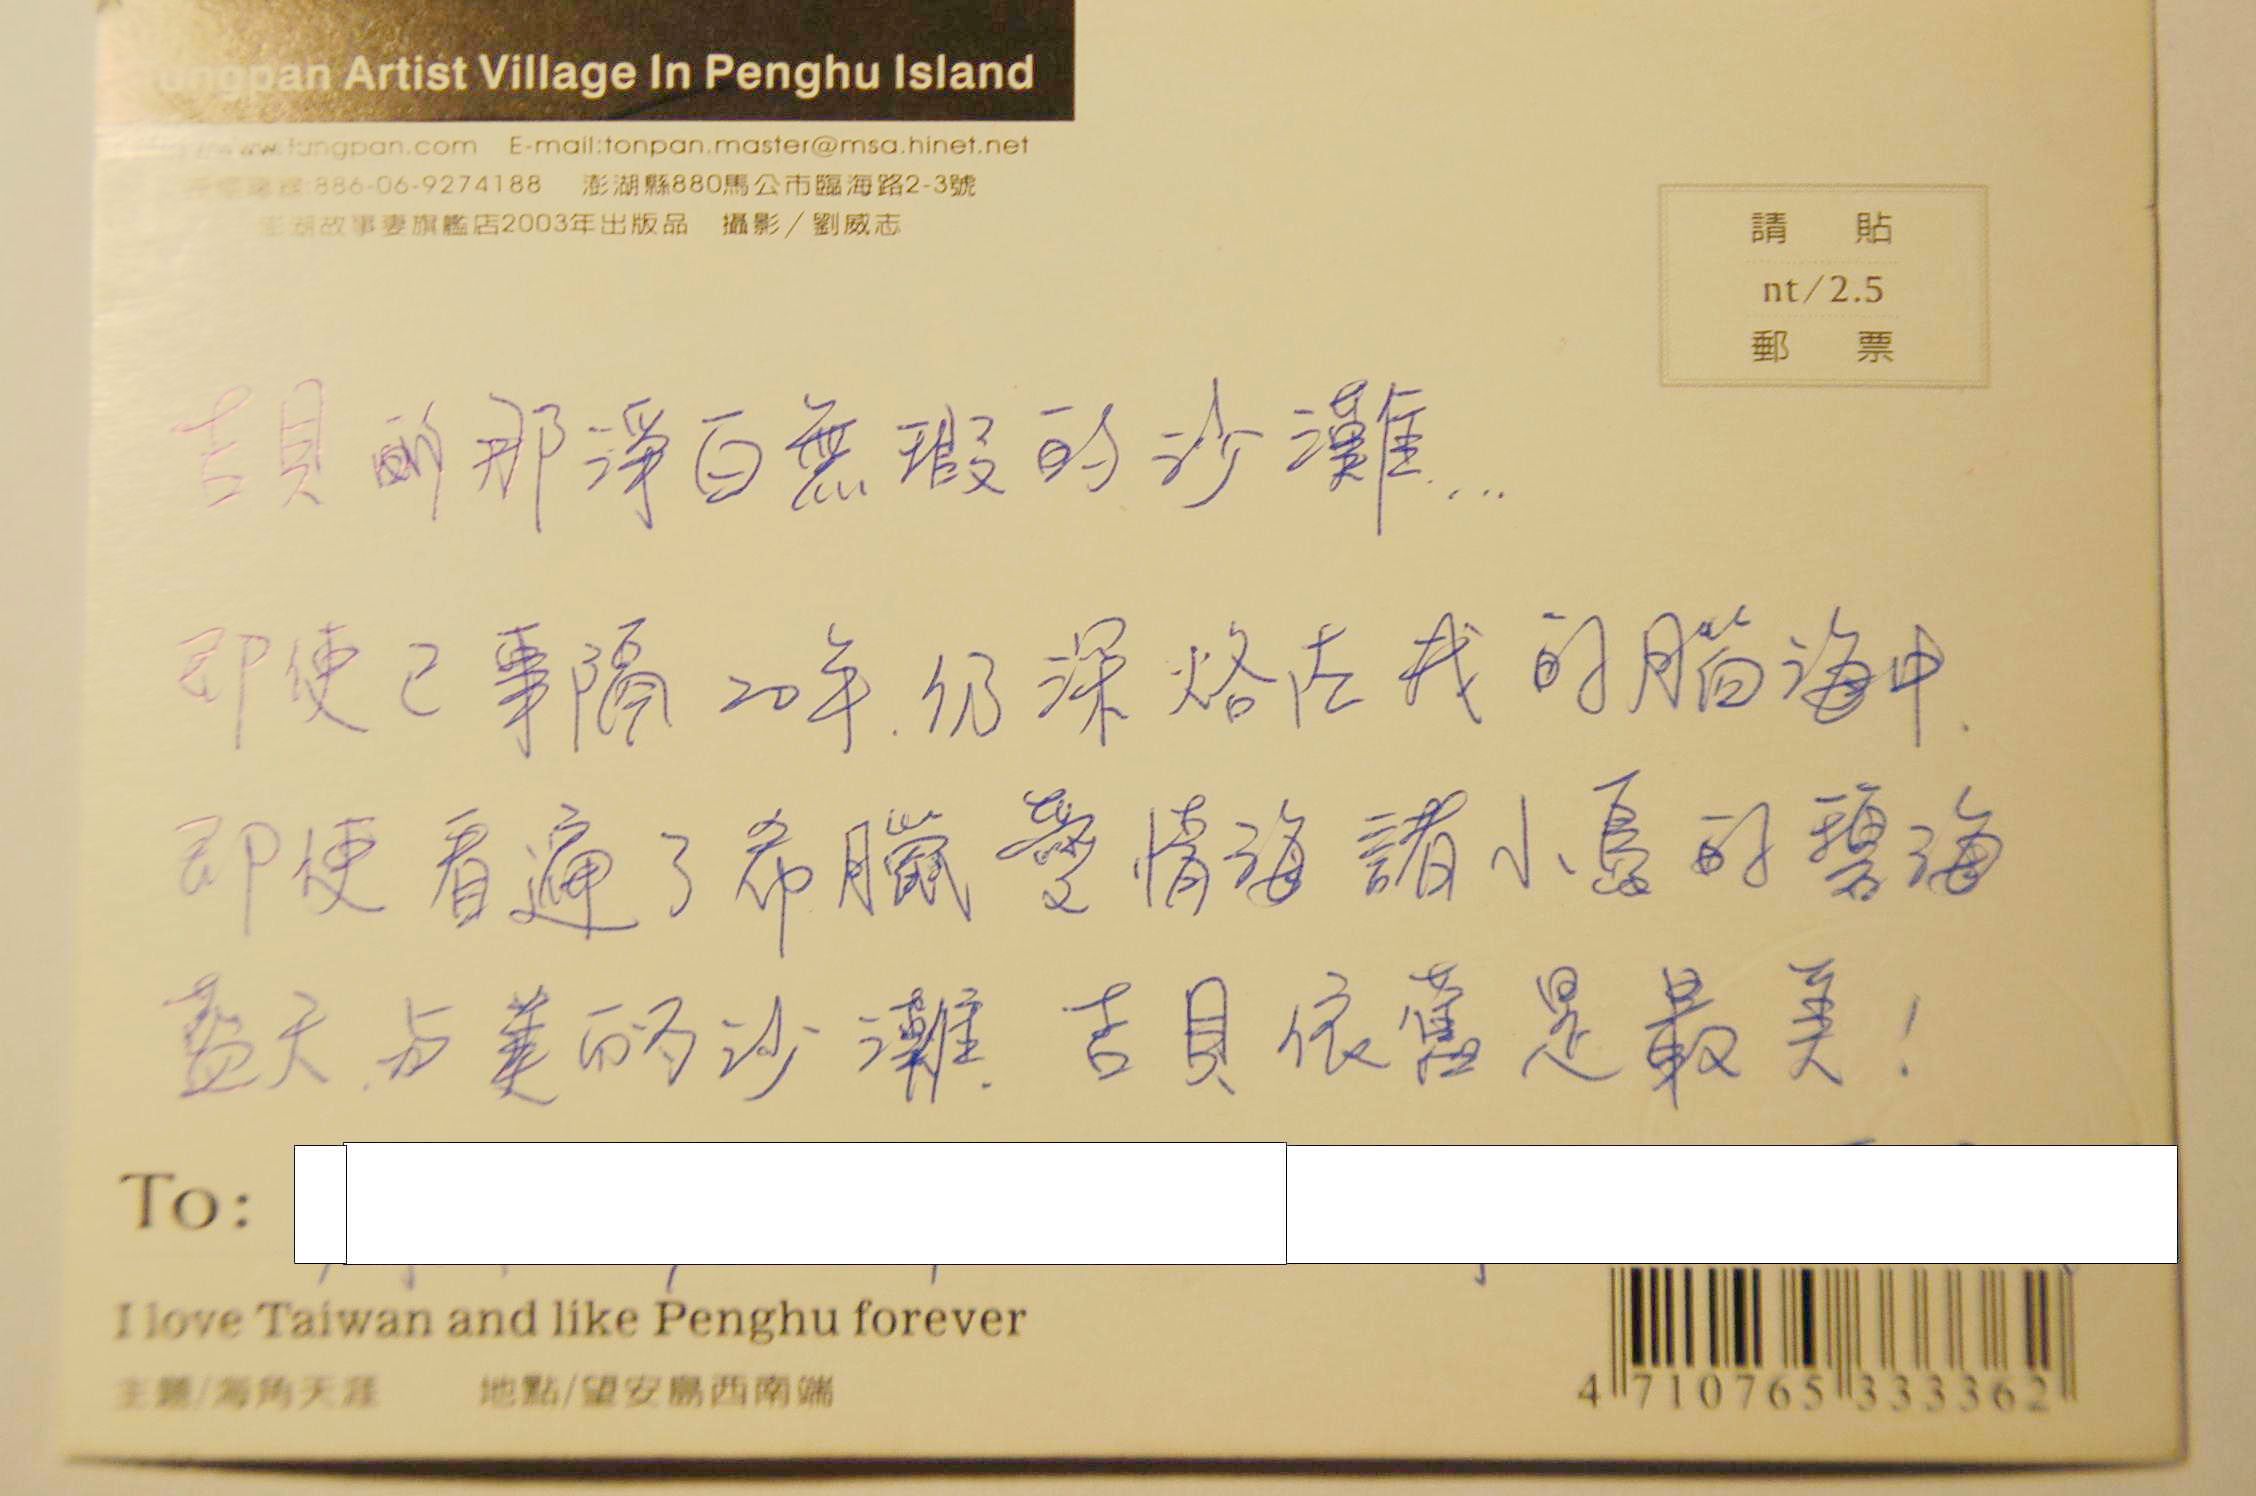 ungpan Artist Village In Penghu Island
www.tungpan.com E-mail:tonpan.master@msa.hinet.net
886-06-9274188 澎湖縣880馬公市臨海路2-3號
澎湖故事妻旗艦店2003年出版品 攝影/劉威志
請 貼
nt/2.5
郵 票
吉貝 那淨白無瑕的沙灘....
即使已事隔20年.仍深烙在我的腦海中.
即使看遍了希臘愛情海諸小島的碧海
藍天.与美的沙灘.吉貝依舊是最美!
To:
I love Taiwan and like Penghu forever
主題/海角天涯 地點/望安島西南端
4 710765 333362